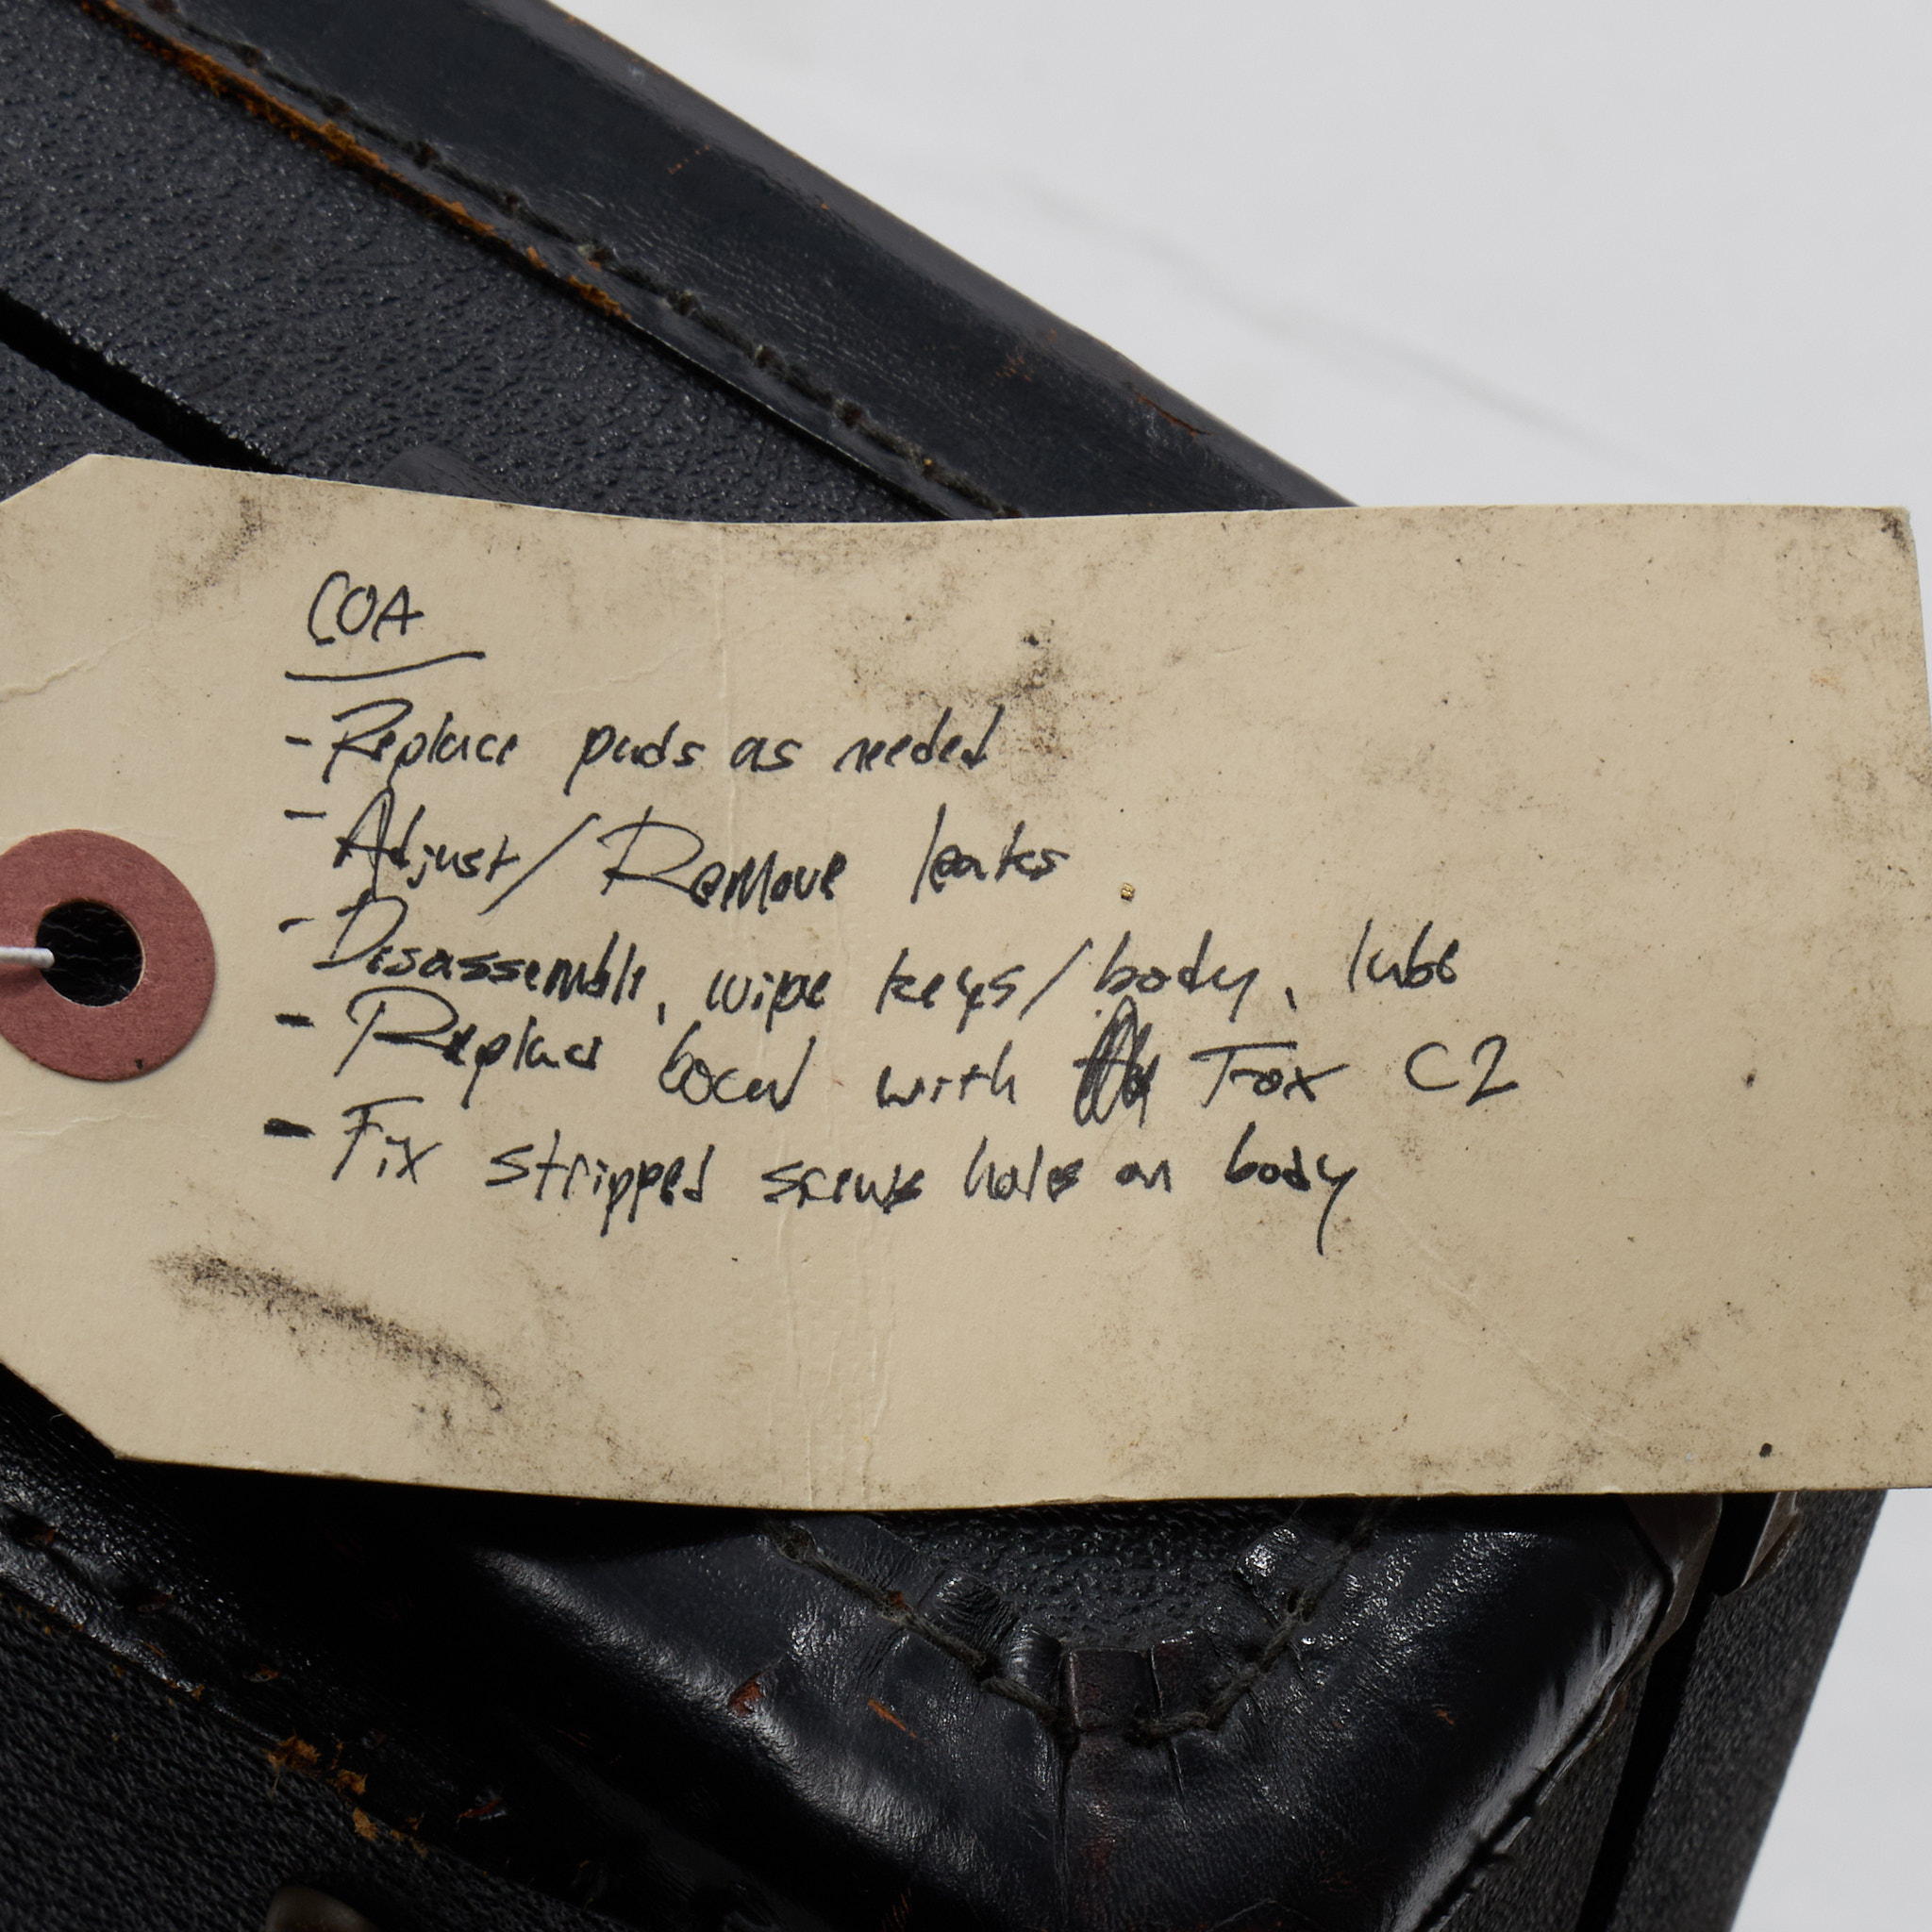 COA
- Replace pads as needed
- Adjust/Remove leaks
- Disassemble, wipe keys/body, lube
- Replace with Trax C2
- Fix stripped screws holes on body